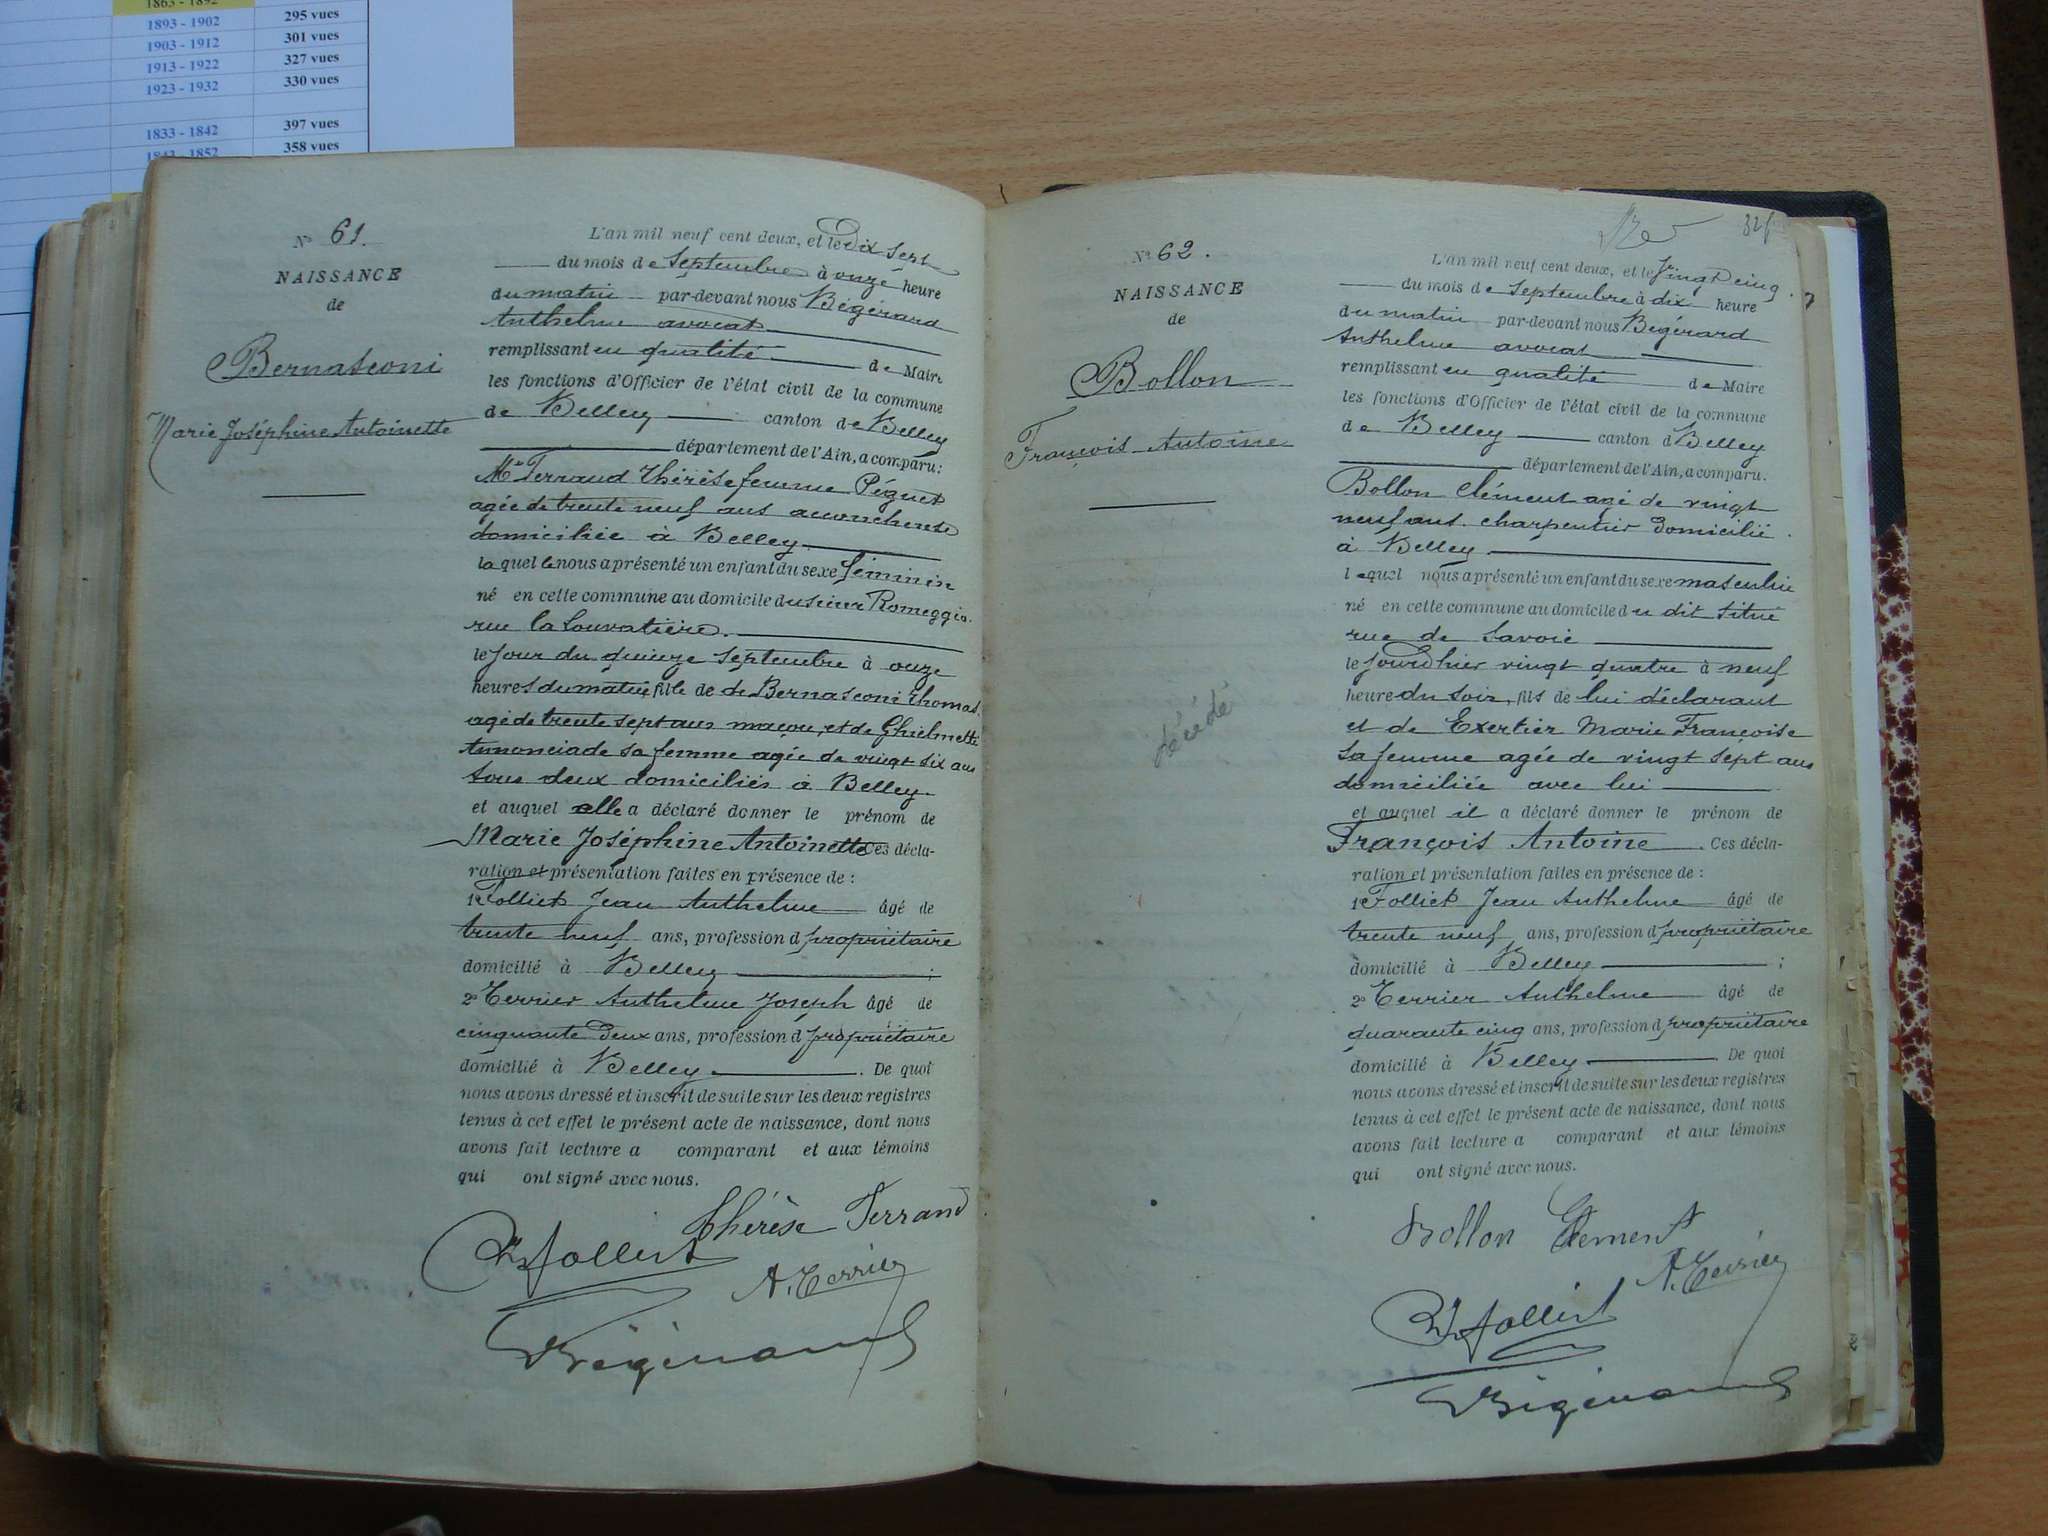 1863 - 1892
1893 - 1902 295 vues
1903 - 1912 301 vues
1913 - 1922 327 vues
1923 - 1932 330 vues
1833 - 1842 397 vues
1843 - 1852 358 vues
N° 61.
NAISSANCE
de
Bernasconi
Marie Joséphine Antoinette
L'an mil neuf cent deux, et le Dix Sept
du mois de Septembre à onze heure
du matin par-devant nous Bégérard
Anthelme avocat
remplissant en qualité de Maire
les fonctions d'Officier de l'état civil de la commune
de Belley canton de Belley
département de l'Ain, a comparu:
Me Ferraud Thérèse femme Péguet
agée de trente neuf ans accoucheuse
domiciliée à Belley
laquelle nous a présenté un enfant du sexe féminin
né en cette commune au domicile du sieur Romeggio
rue la Louvatière.
le jour du quinze Septembre à onze
heures du matin, fille de de Bernasconi Thomas
agé de trente sept ans maçon, et de Ghielmetti
Annonciade sa femme agée de vingt six ans
tous deux domiciliés à Belley.
et auquel elle a déclaré donner le prénom de
Marie Joséphine Antoinette Ces décla-
ration et présentation faites en présence de :
1° Folliet Jean Anthelme âgé de
trente neuf ans, profession d propriétaire
domicilié à Belley ;
2° Terrier Anthelme Joseph âgé de
cinquante deux ans, profession d propriétaire
domicilié à Belley . De quoi
nous avons dressé et inscrit de suite sur les deux registres
tenus à cet effet le présent acte de naissance, dont nous
avons fait lecture a comparant et aux témoins
qui ont signé avec nous.
Thérèse Ferrand
Folliet
A. Terrier
Bégérard
N° 62.
NAISSANCE
de
Bollon
François Antoine
décédé
L'an mil neuf cent deux, et le Vingt cinq
du mois de Septembre à dix heure
du matin par-devant nous Bégérard
Anthelme avocat
remplissant en qualité de Maire
les fonctions d'Officier de l'état civil de la commune
de Belley canton d Belley
département de l'Ain, a comparu.
Bollon Clément agé de vingt
neuf ans. charpentier domicilié
à Belley
lequel nous a présenté un enfant du sexe masculin
né en cette commune au domicile du dit situé
rue de Savoie
le jour d'hier vingt quatre à neuf
heure du soir, fils de lui déclarant
et de Exertier Marie Françoise
sa femme agée de vingt sept ans
domiciliée avec lui
et auquel il a déclaré donner le prénom de
François Antoine . Ces décla-
ration et présentation faites en présence de :
1° Folliet Jean Anthelme âgé de
trente neuf ans, profession d propriétaire
domicilié à Belley ;
2° Terrier Anthelme âgé de
quarante cinq ans, profession d propriétaire
domicilié à Belley . De quoi
nous avons dressé et inscrit de suite sur les deux registres
tenus à cet effet le présent acte de naissance, dont nous
avons fait lecture a comparant et aux témoins
qui ont signé avec nous.
Bollon Clement
A. Terrier
Folliet
Bégérard